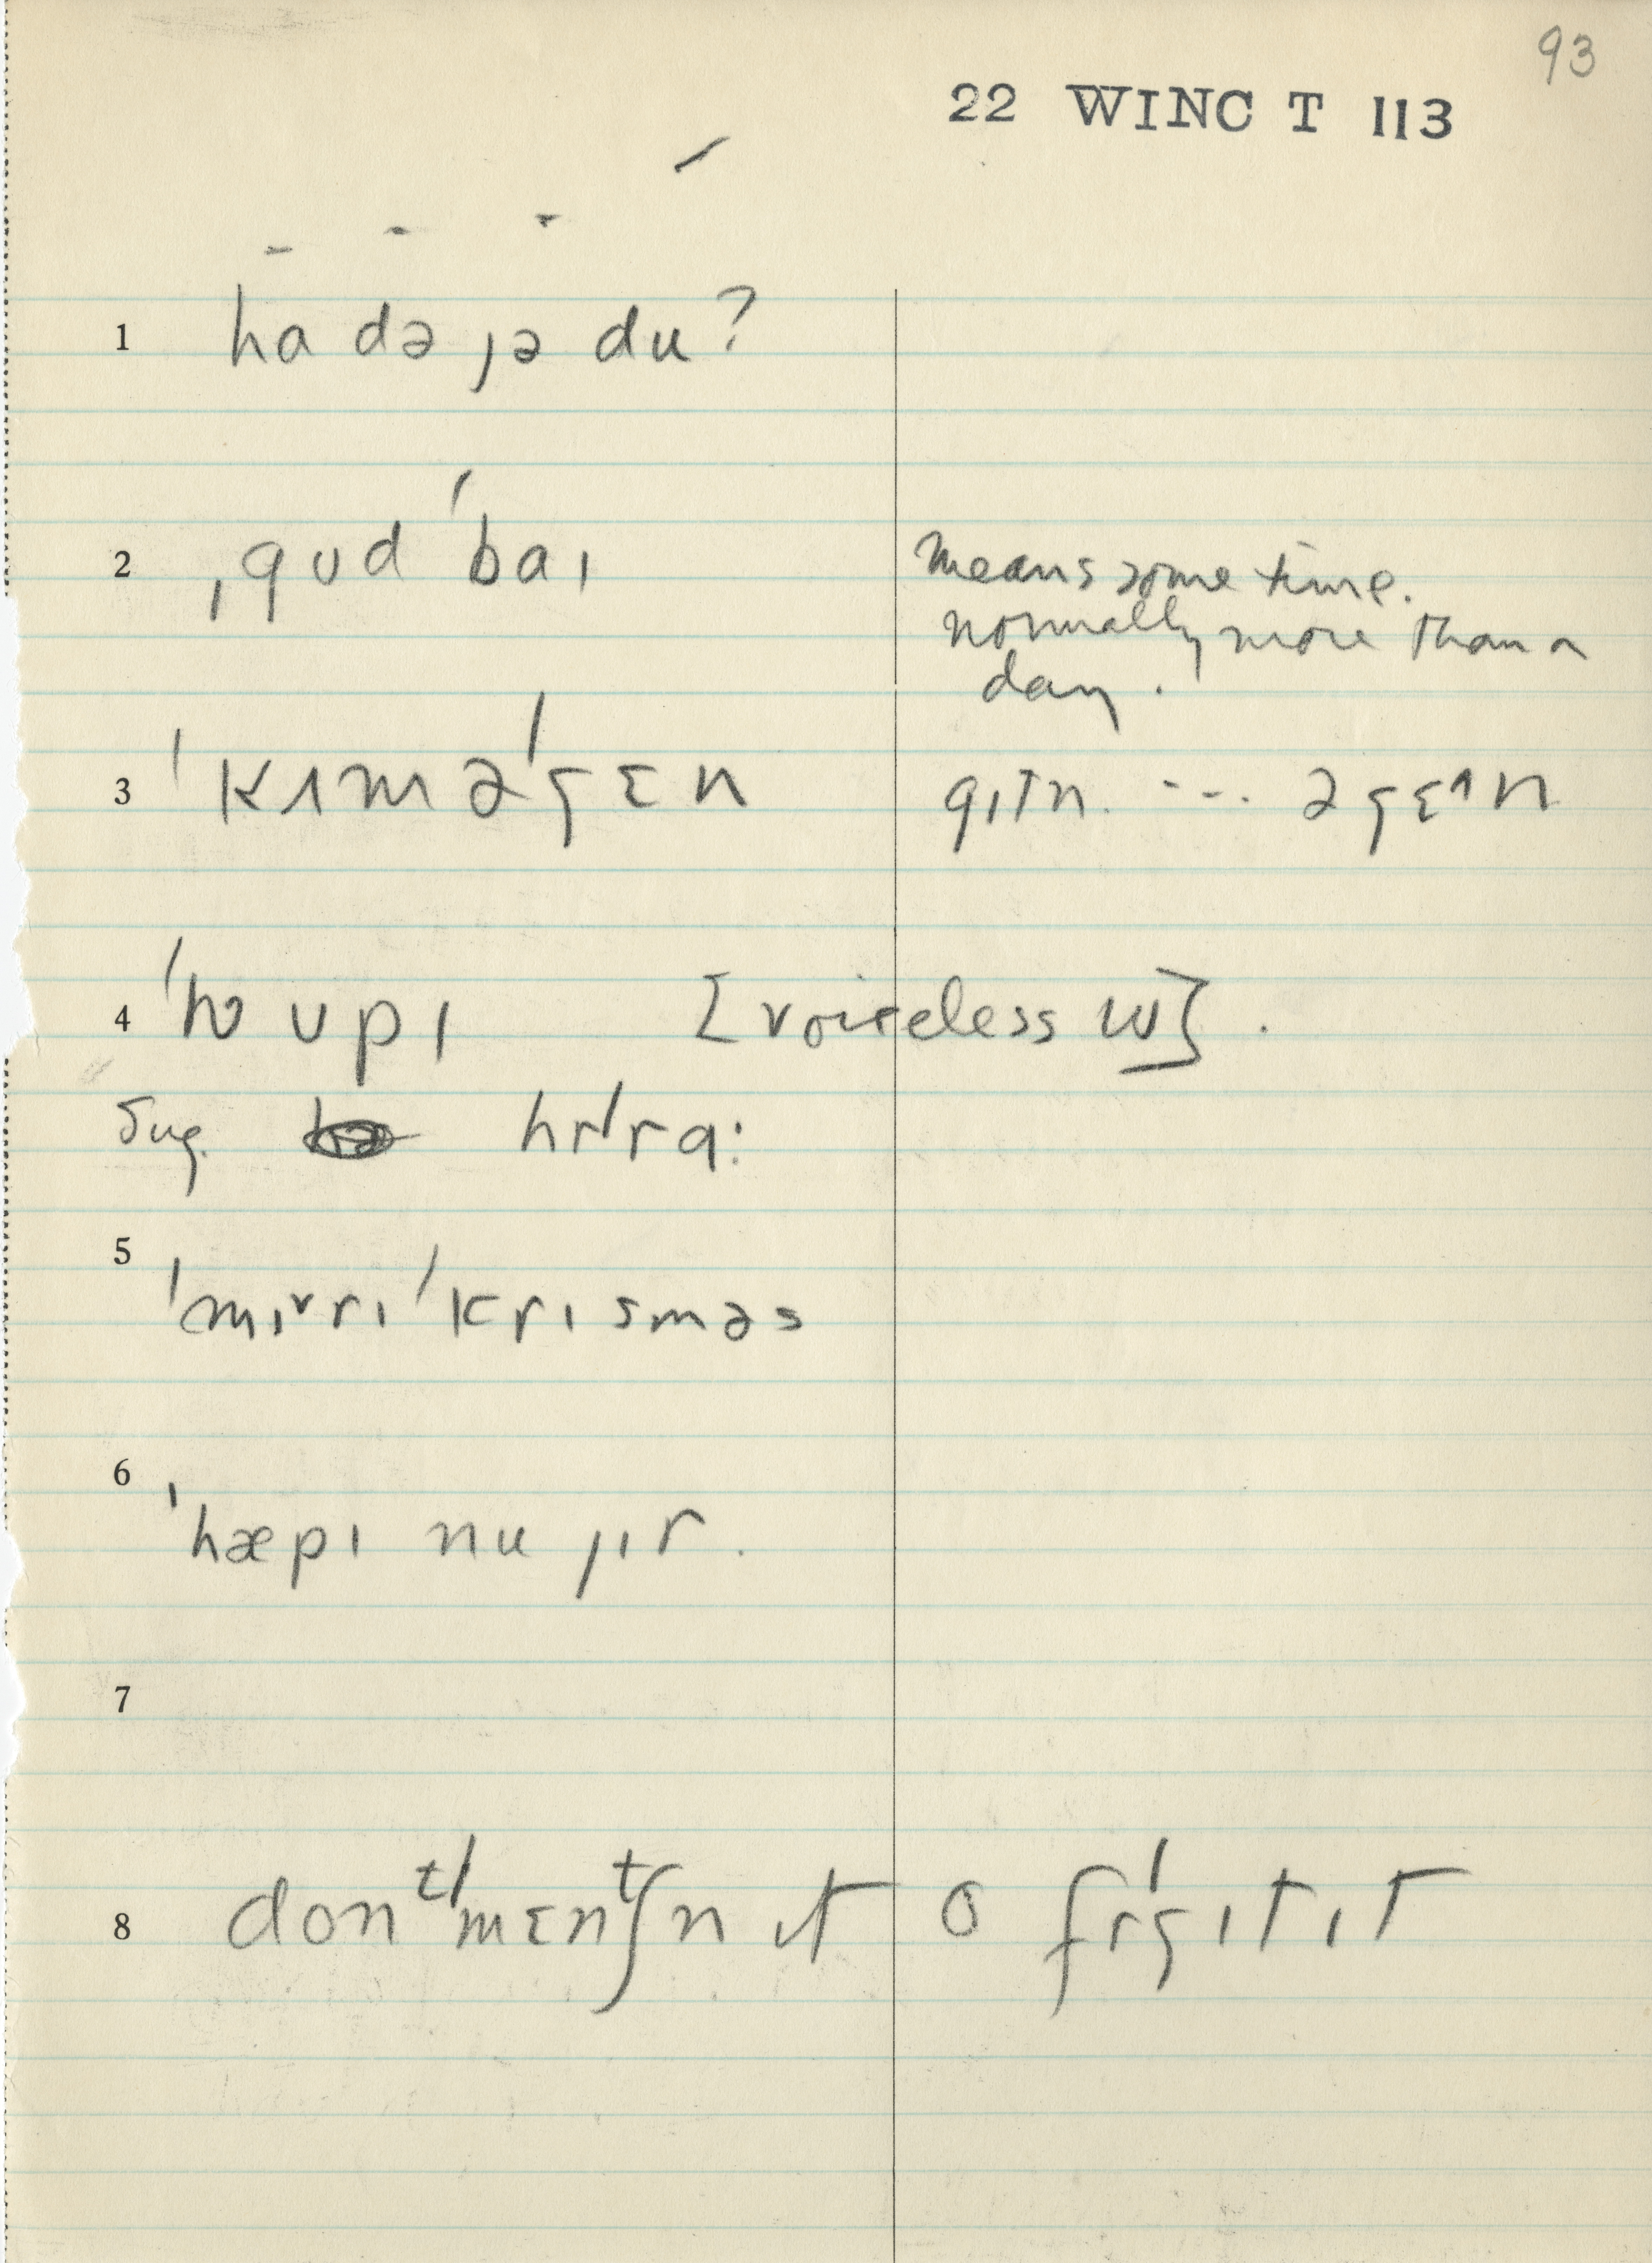 93
22 WINC T 113
1 ha də jə du?
2 ˌgʊd ˈbaɪ
means some time.
normally more than a
day.
3 ˈkɪm əˈgɛn
gɪtn. --- əgɛ^n
4 ˈʍʊpɪ [voiceless w].
Sug. hrˈrɑ:
5 ˈmɪ˅rɪ ˈkrɪsməs
6 ˈhæpɪ nu jɪr.
7
8 donᵗˈmɛnᵗʃn ɪt o frˈgɪt ɪt